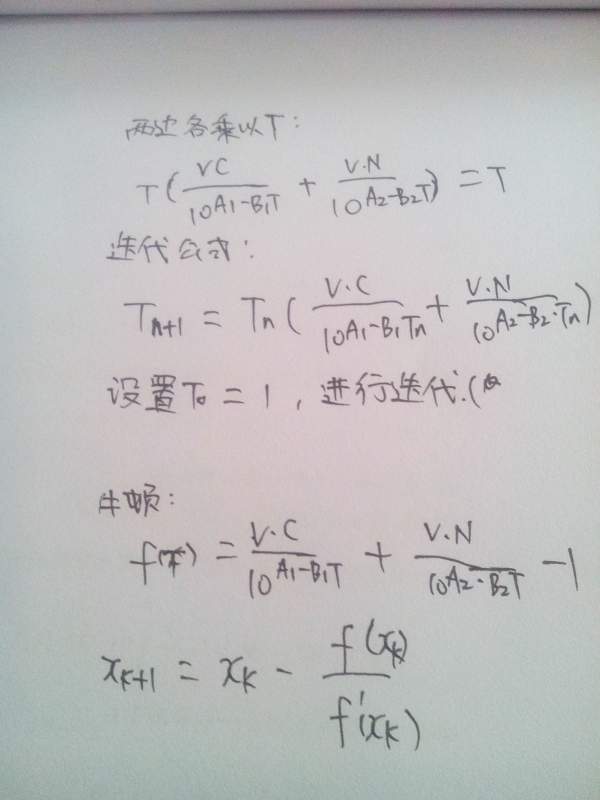 两边各乘以T:
T(\frac{VC}{10^{A_1-B_1T}} + \frac{V.N}{10^{A_2-B_2T}}) = T
迭代公式:
T_{n+1} = T_n(\frac{V.C}{10^{A_1-B_1T_n}} + \frac{V.N}{10^{A_2-B_2 \cdot T_n}})
设置T_0 = 1, 进行迭代.(
牛顿:
f(T) = \frac{V.C}{10^{A_1-B_1T}} + \frac{V.N}{10^{A_2-B_2T}} -1
x_{k+1} = x_k - \frac{f(x_k)}{f'(x_k)}